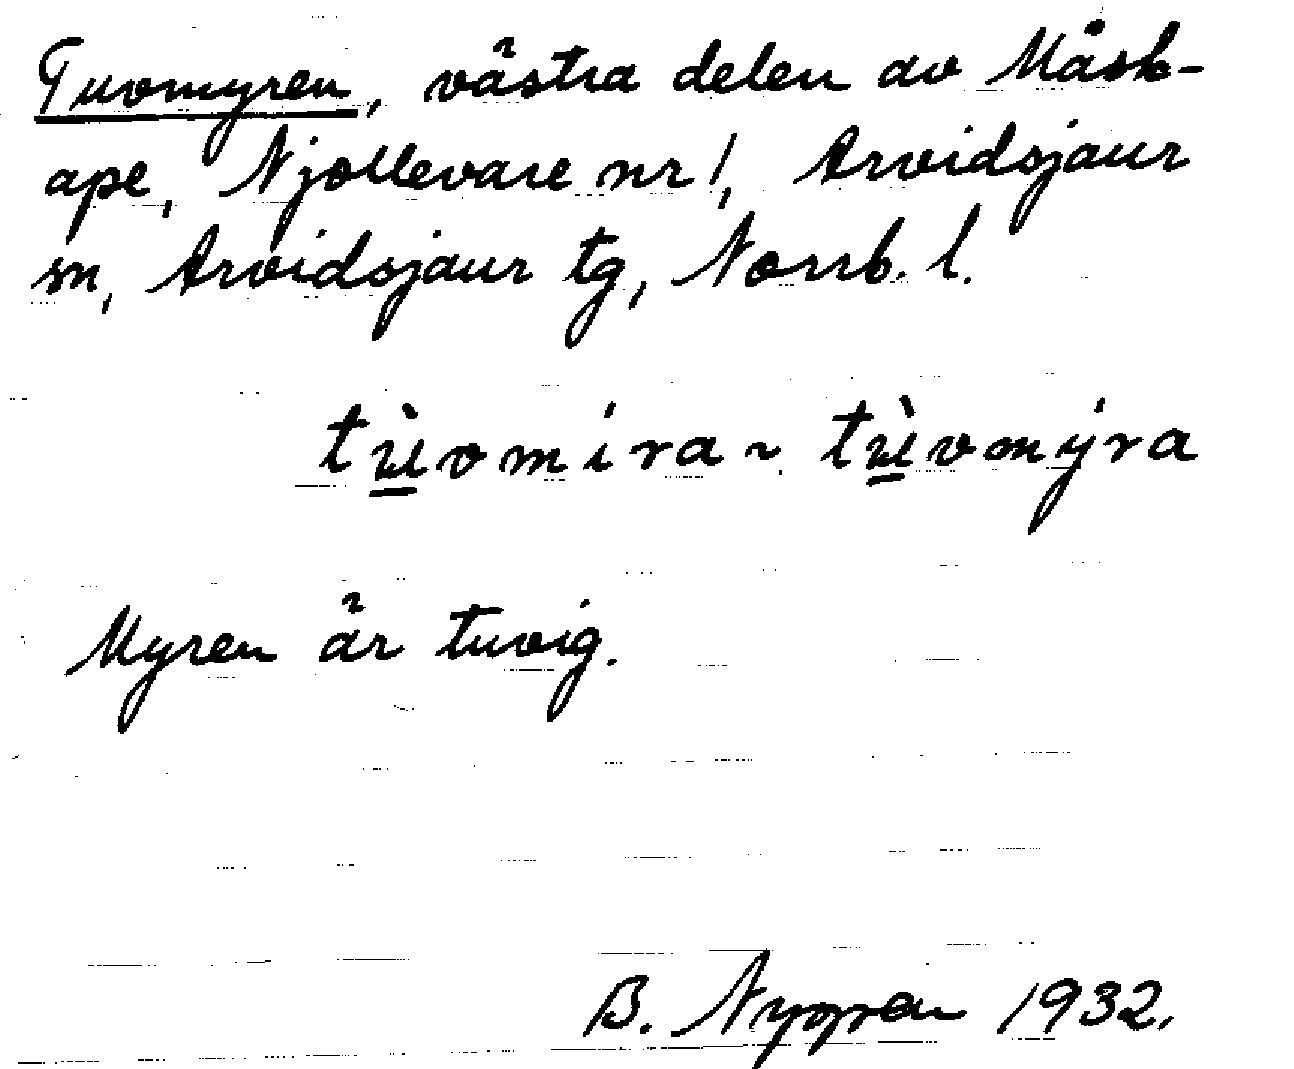 Tuvmyren, västra delen av Måsk-
ape, Njallevare nr 1, Arvidsjaur
sn, Arvidsjaur tg, Norrb. l.
tùvmira ~ tùvmýra
Myren är tuvig.
B. Nygren 1932.